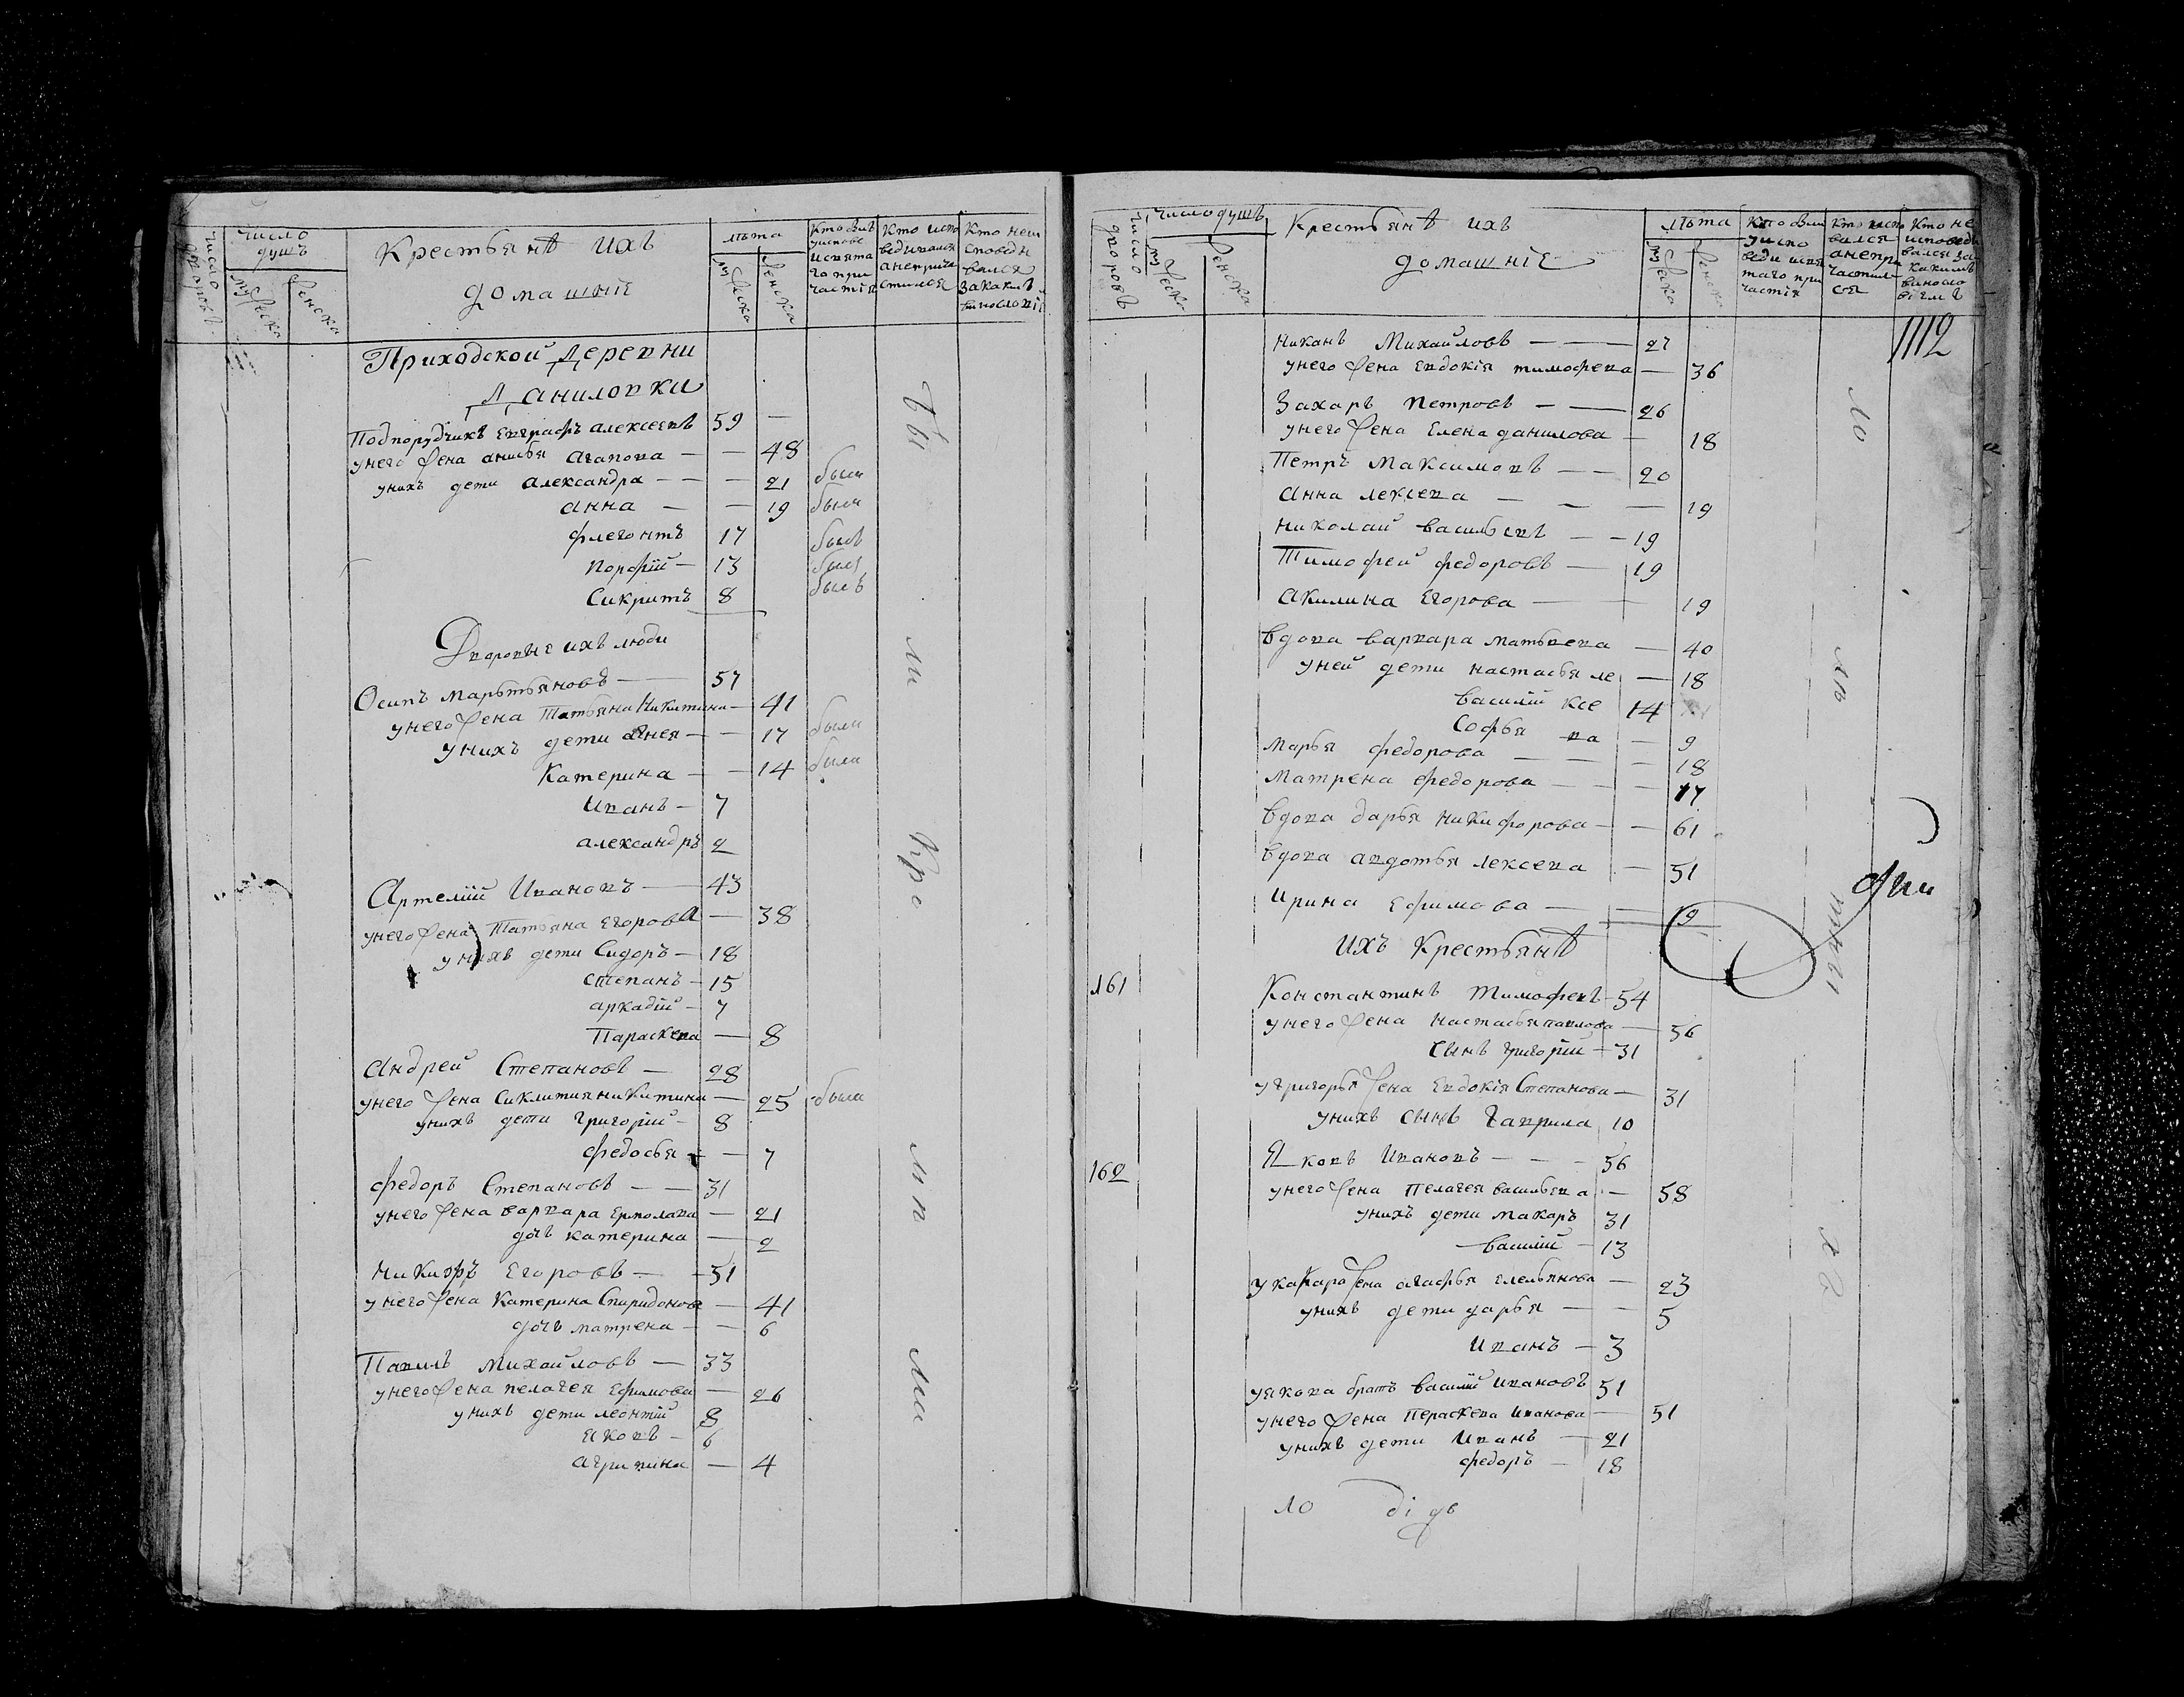 число дворовъ
число душъ
мужеска
женска
Крестьянѣ ихъ
домашніе
лѣта
мужеска
женска
Кто былъ
у испове
и свята
го при
частія
Кто испо
ведивался
а неприча
стился
Кто неи
споведы
вался
за какимъ
Приходской деревни
Даниловки
Подпорудчикъ Евграфъ алексеевъ 59 —
у него жена анисья Агапова — — 48
у нихъ дети Александра — — — 21 была
Анна — — 19 была
флегонтъ 17 былъ
порфій — 13 былъ
Сикритъ 8 былъ
Дворовые ихъ люди
Осипъ Мартьяновъ — 57
у него жена Татьяна Никитина — 41
у нихъ дети агнея — — 17 была
Катерина — — 14 была
Иванъ — 7
александръ 2
Артемій Ивановъ — 43
у него жена Татьяна Егорова — 38
у нихъ дети Сидоръ — 18
степанъ — 15
аркадій — 7
Параскева — 8
Андрей Степановъ — 28
у него жена Сиклития никитина — 25 была
у нихъ дети Григорій — 8
федосья — 7
федоръ Степановъ — 31
у него жена варвара Ермолава — 21
дочь катерина — 2
Никифръ Егоровъ — 51
у него жена Катерина Спиридонова — 41
дочь матрена — — 6
Павилъ Михайловъ — 33
у него жена пелагея Ефимова — 26
у нихъ дети леонтій 8
яковъ — 6
агрипина — 4
Бы
ли
Кро
ми
число дворовъ
число душъ
мужеска
женска
Крестьянѣ ихъ
домашніе
лѣта
мужеска
женска
Кто былъ
у испо
веди и свя
таго при
частія
Кто испо
вался
а непри
частил
ся
Кто не
исповеди
вался за
какимъ
виносло
віемъ
1112
никанъ Михайловъ — — 27
у него жена Евдокія тимофева — 36
Захаръ Петровъ — — 26
у него жена Елена данилова — 18
Петръ Максимовъ — — 20
Анна лексева — — — 19
николай васильевъ — — 19
Тимофей федоровъ — 19
акилина Егорова — 19
вдова варвара матвеева — 40
у ней дети настасья ле — 18
василій ксе 14
Софья ва — 9
марья федорова — — 18
матрена федорова — — 17
вдова дарья никифорова — — 61
вдова авдотья лексева — 51
ирина Ефимова — — 19
ихъ Крестьянѣ
161 Константинъ Тимофевъ — 54
у него жена настасья павлова — 56
сынъ григорій — 31
у григорья жена Евдокія Степанова — 31
у нихъ сынъ Гаврила 10
162 Яковъ Ивановъ — — — 56
у него жена пелагея васильева — 58
у нихъ дети макаръ 31
василій — 13
у макара жена агафья емельянова — 23
у нихъ дети дарья — — 5
иванъ — 3
у якова братъ василій ивановъ 51
у него жена Пераскева иванова — 51
у нихъ дети иванъ — 21
федоръ — 18